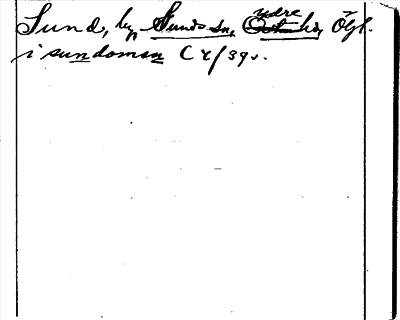 Sund, by, Sunds sn, Ydre hd, Ögl.
i sundoman C 4/390.